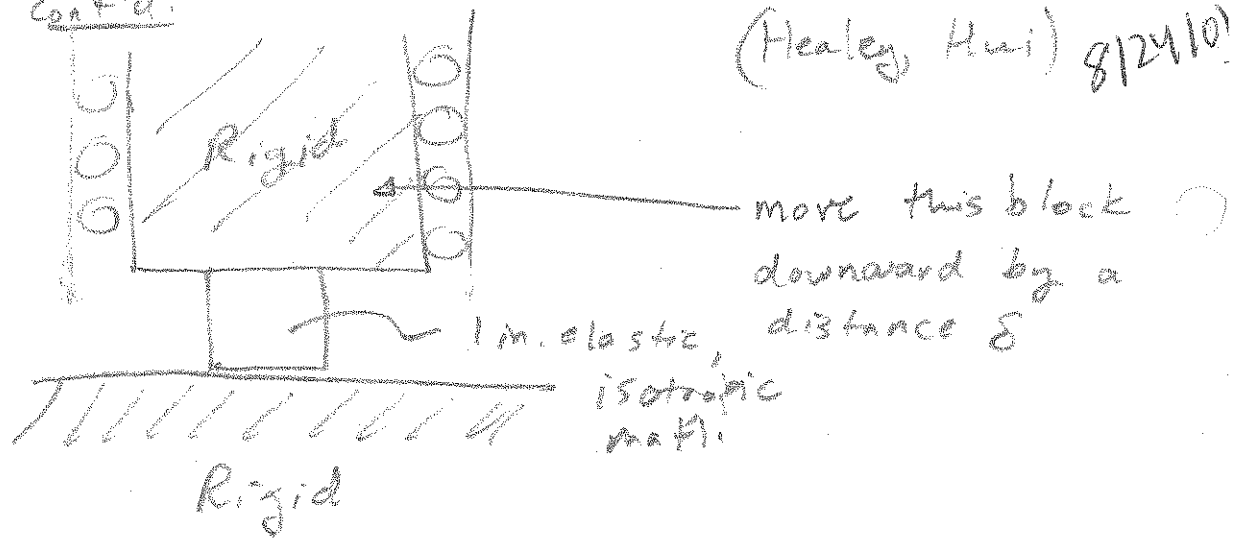 Cont'd.
(Healey, Hui) 8/24/01
Rigid
move this block
downward by a
distance δ
lin. elastic,
isotropic
mat'l.
Rigid